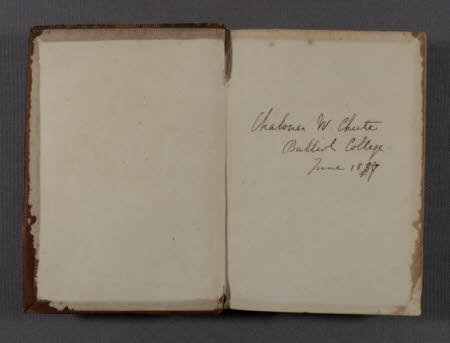 Chaloner W Chute
Balliol College
June 1857